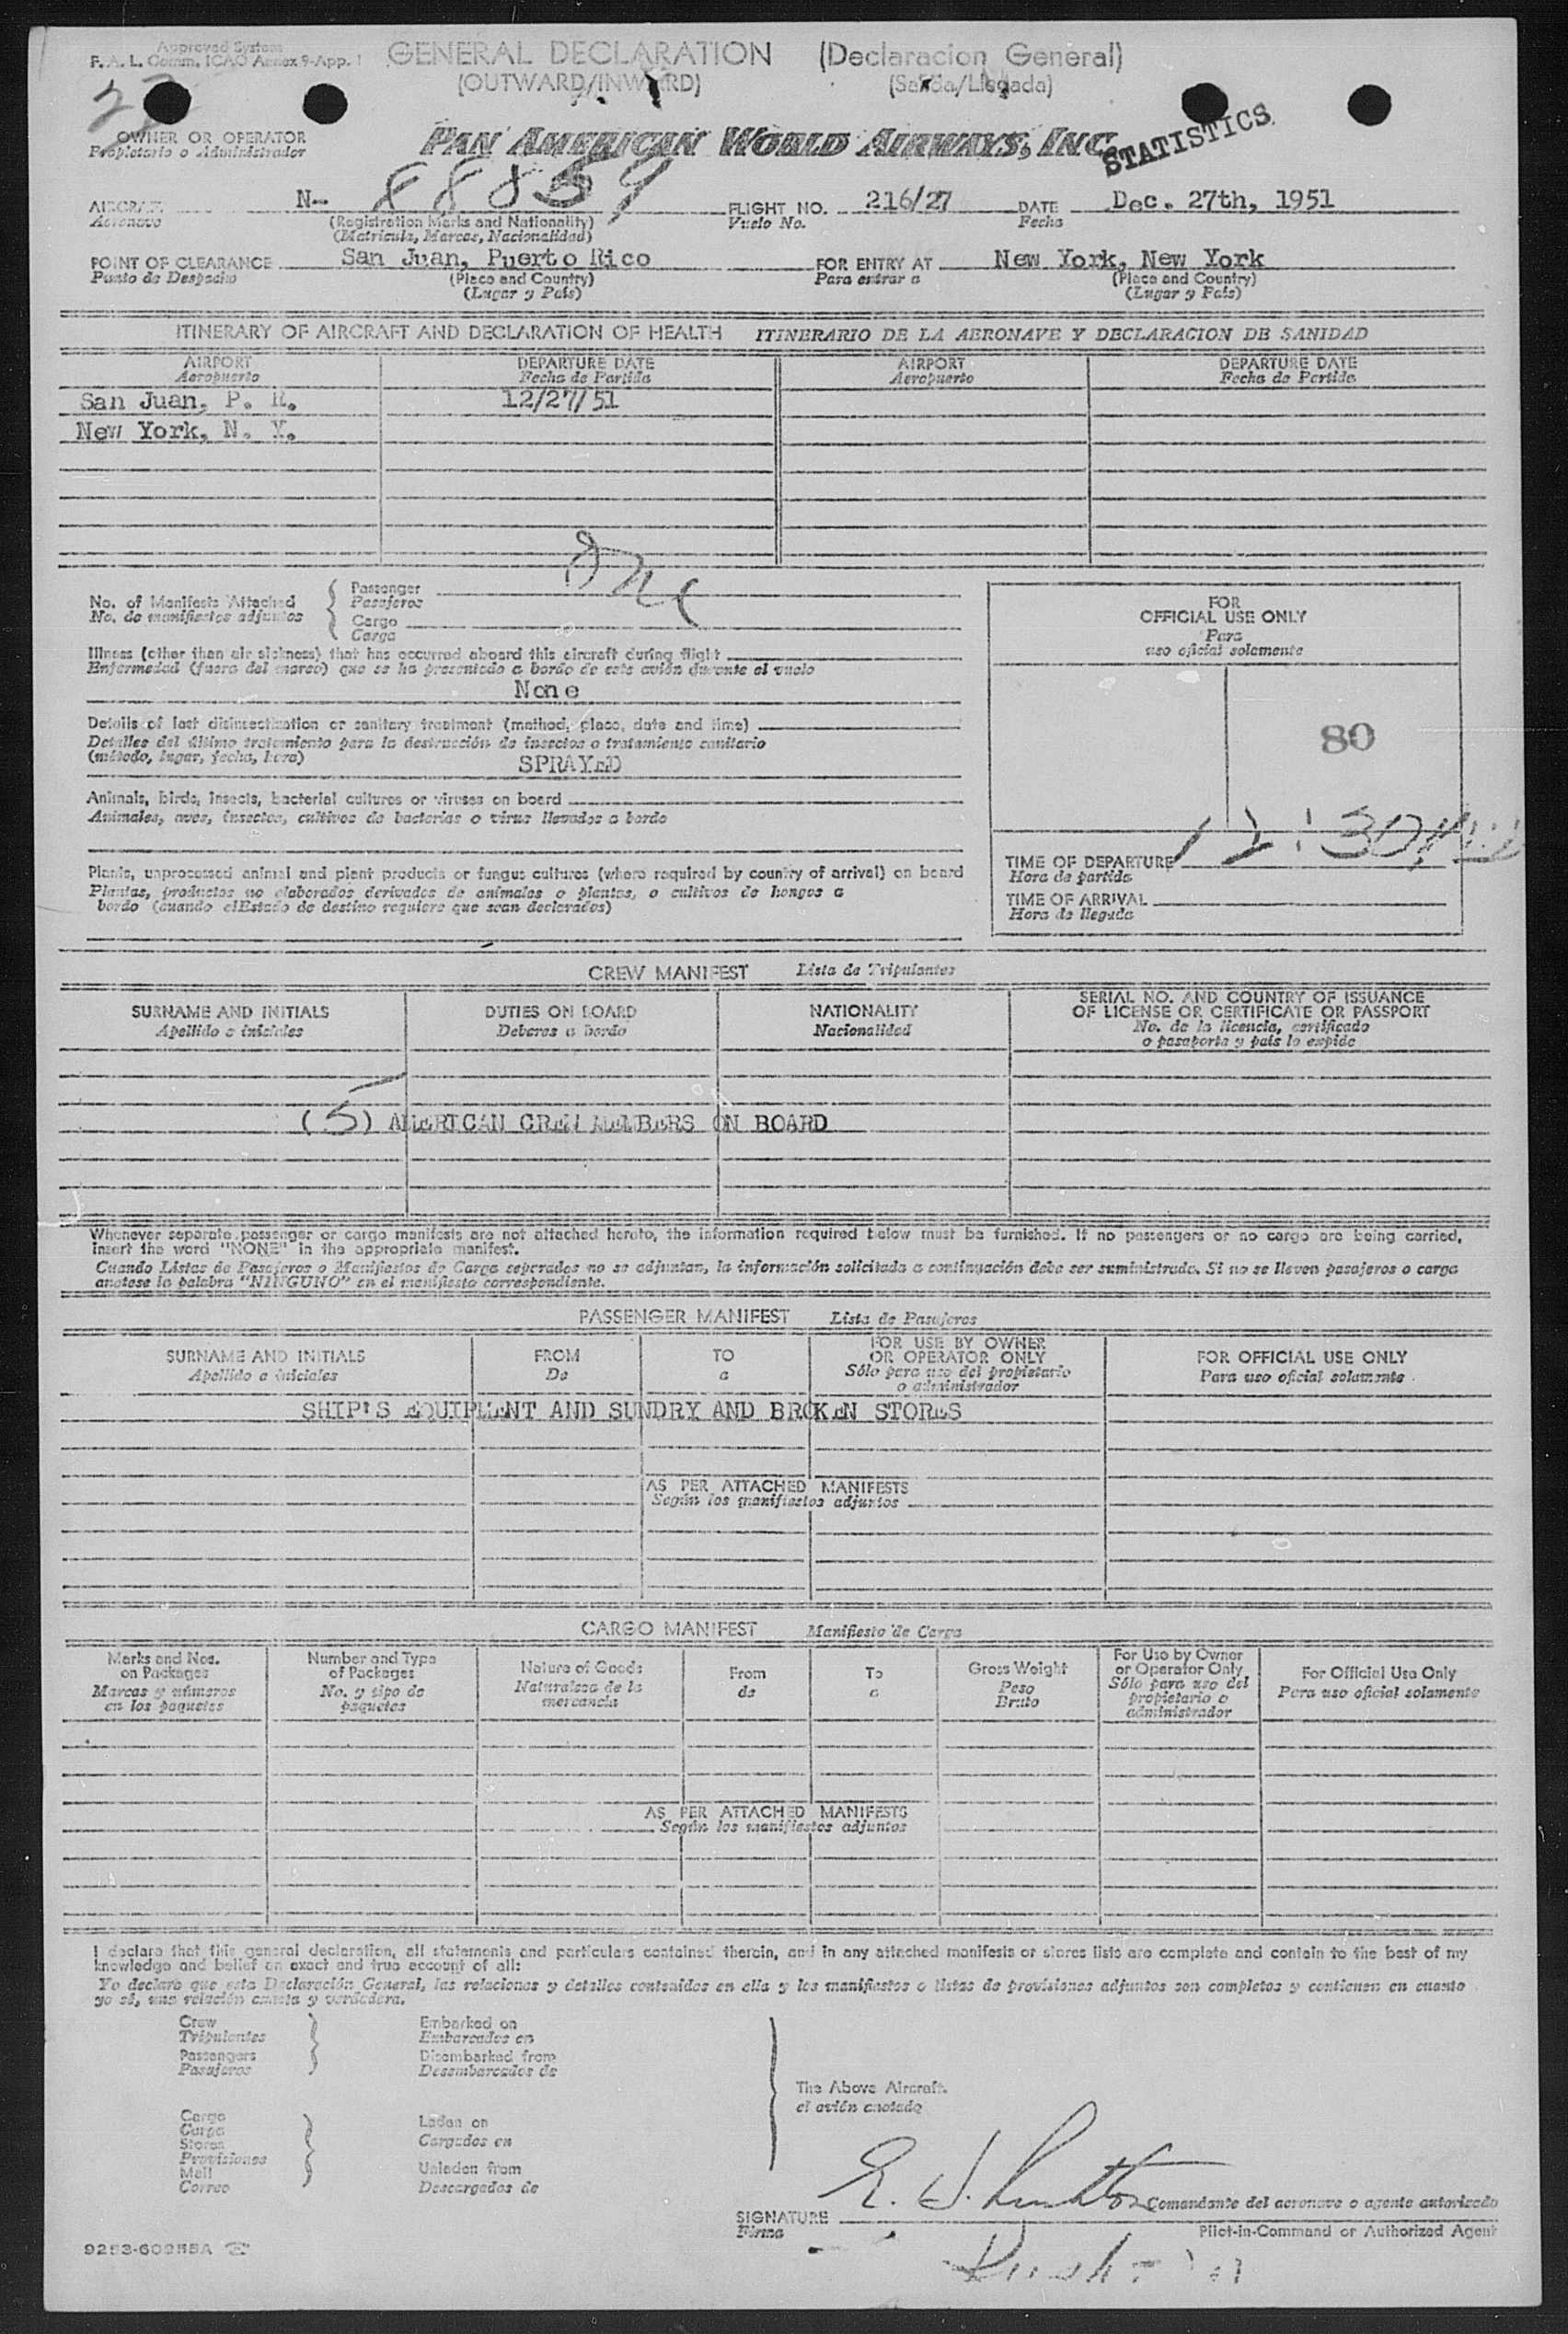 Approved System
F. A. L. Comm. ICAO Annex 9-App. 1
GENERAL DECLARATION (Declaracion General)
(OUTWARD/INWARD) (Salida/Llegada)
OWNER OR OPERATOR
Propietario o Administrador
PAN AMERICAN WORLD AIRWAYS, INC.
STATISTICS
AIRCRAFT N- 88859 FLIGHT NO. 216/27 DATE Dec. 27th, 1951
Aeronave (Registration Marks and Nationality) Vuelo No. Fecha
(Matricula, Marcas, Nacionalidad)
POINT OF CLEARANCE San Juan, Puerto Rico FOR ENTRY AT New York, New York
Punto de Despacho (Place and Country) Para entrar a (Place and Country)
(Lugar y País) (Lugar y País)
ITINERARY OF AIRCRAFT AND DECLARATION OF HEALTH ITINERARIO DE LA AERONAVE Y DECLARACION DE SANIDAD
AIRPORT DEPARTURE DATE AIRPORT DEPARTURE DATE
Aeropuerto Fecha de Partida Aeropuerto Fecha de Partida
San Juan, P. R. 12/27/51
New York, N. Y.
No. of Manifests Attached
No. de manifiestos adjuntos
Passenger
Pasajeros
Cargo
Carga
FOR
OFFICIAL USE ONLY
Para
uso oficial solamente
Illness (other than air sickness) that has occurred aboard this aircraft during flight
Enfermedad (fuera del mareo) que se ha presentado a bordo de este avión durante el vuelo
None
Details of last disinsectization or sanitary treatment (method, place, date and time)
Detalles del último tratamiento para la destrucción de insectos o tratamiento sanitario
(método, lugar, fecha, hora)
SPRAYED
80
Animals, birds, insects, bacterial cultures or viruses on board
Animales, aves, insectos, cultivos de bacterias o virus llevados a bordo
Plants, unprocessed animal and plant products or fungus cultures (where required by country of arrival) on board
Plantas, productos no elaborados derivados de animales o plantas, o cultivos de hongos a
bordo (cuando elEstado de destino requiere que sean declarados)
TIME OF DEPARTURE 12:30
Hora de partida
TIME OF ARRIVAL
Hora de llegada
CREW MANIFEST Lista de Tripulantes
SURNAME AND INITIALS DUTIES ON BOARD NATIONALITY SERIAL NO. AND COUNTRY OF ISSUANCE
OF LICENSE OR CERTIFICATE OR PASSPORT
Apellido e iniciales Deberes a bordo Nacionalidad No. de la licencia, certificado
o pasaporte y país lo expide
(5) AMERICAN CREW MEMBERS ON BOARD
Whenever separate passenger or cargo manifests are not attached hereto, the information required below must be furnished. If no passengers or no cargo are being carried,
insert the word "NONE" in the appropriate manifest.
Cuando Listas de Pasajeros o Manifiestos de Carga separados no se adjuntan, la información solicitada a continuación debe ser suministrada. Si no se lleven pasajeros o carga
anotese la palabra "NINGUNO" en el manifiesto correspondiente.
PASSENGER MANIFEST Lista de Pasajeros
SURNAME AND INITIALS FROM TO FOR USE BY OWNER
OR OPERATOR ONLY FOR OFFICIAL USE ONLY
Apellido e iniciales De a Sólo para uso del propietario
o administrador Para uso oficial solamente
SHIP'S EQUIPMENT AND SUNDRY AND BROKEN STORES
AS PER ATTACHED MANIFESTS
Según los manifiestos adjuntos
CARGO MANIFEST Manifiesto de Carga
Marks and Nos.
on Packages
Marcas y números
en los paquetes
Number and Type
of Packages
No. y tipo de
paquetes
Nature of Goods
Naturaleza de la
mercancía
From
de
To
a
Gross Weight
Peso
Bruto
For Use by Owner
or Operator Only
Sólo para uso del
propietario o
administrador
For Official Use Only
Para uso oficial solamente
AS PER ATTACHED MANIFESTS
Según los manifiestos adjuntos
I declare that this general declaration, all statements and particulars contained therein, and in any attached manifests or stores lists are complete and contain to the best of my
knowledge and belief an exact and true account of all:
Yo declaro que esta Declaración General, las relaciones y detalles contenidos en ella y los manifiestos o listas de provisiones adjuntos son completos y contienen en cuanto
yo sé, una relación exacta y verdadera.
Crew
Tripulantes
Passengers
Pasajeros
Embarked on
Embarcados en
Disembarked from
Desembarcados de
The Above Aircraft.
el avión anotado
Cargo
Carga
Stores
Provisiones
Mail
Correo
Laden on
Cargados en
Unladen from
Descargados de
SIGNATURE
Firma
Comandante del aeronave o agente autorizado
Pilot-in-Command or Authorized Agent